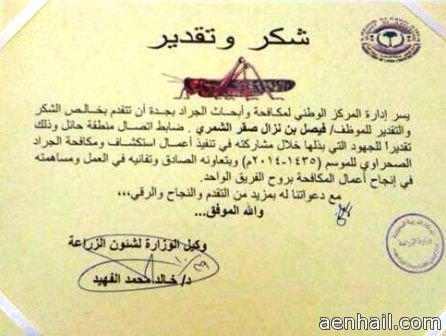 شكر وتقدير
يسر إدارة المركز الوطني لمكافحة وأبحاث الجراد بجدة أن تتقدم بخالص الشكر
والتقدير للموظف/ فيصل بن نزال صقر الشمري . ضابط اتصال منطقة حائل وذلك
تقديراً للجهود التي بذلها خلال مشاركته في تنفيذ أعمال استكشاف ومكافحة الجراد
الصحراوي للموسم (١٤٣٥-٢٠١٤م) وبتعاونه الصادق وتفانيه في العمل ومساهمته
في إنجاح أعمال المكافحة بروح الفريق الواحد.
مع دعواتنا له بمزيد من التقدم والنجاح والرقي،،،
والله الموفق...
وكيل الوزارة لشئون الزراعة
د/ خالد محمد الفهيد
aenhail.com